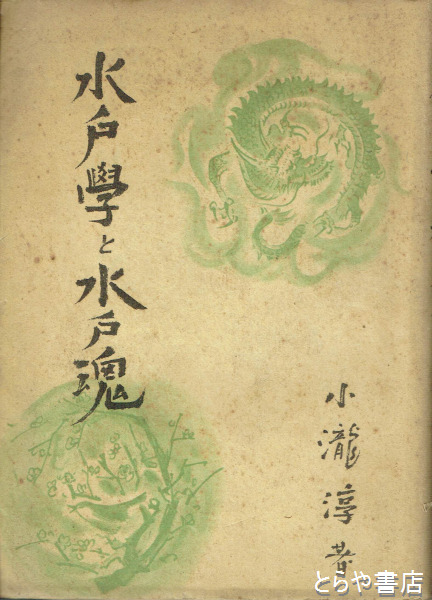 水戸學と水戸魂
小瀧淳著
とらや書店